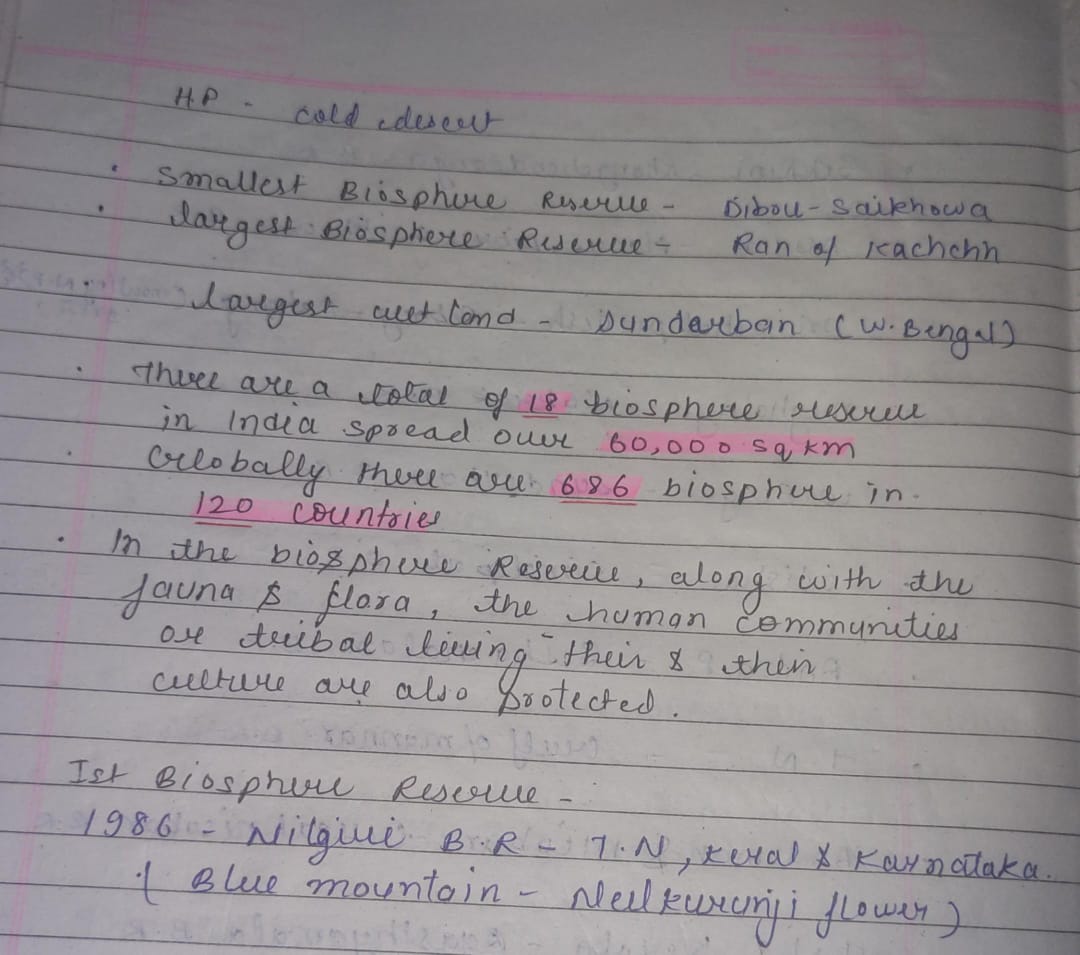 H.P - cold desert
• Smallest Biosphere Reserve - Dibou-Saikhowa
• largest Biosphere Reserve - Ran of Kachchh
• largest wet land - Sundarban (W. Bengal)
• There are a total of 18 biosphere reserve
in India spread over 60,000 sq km
• Globally there are 686 biosphere in
120 countries
• In the biosphere Reserve, along with the
fauna & flora, the human communities
or tribal living their & their
culture are also protected.
Ist Biosphere Reserve -
1986 - Nilgiri B.R - T.N, Keral & Karnataka.
( Blue mountain - Neelkurunji flower )